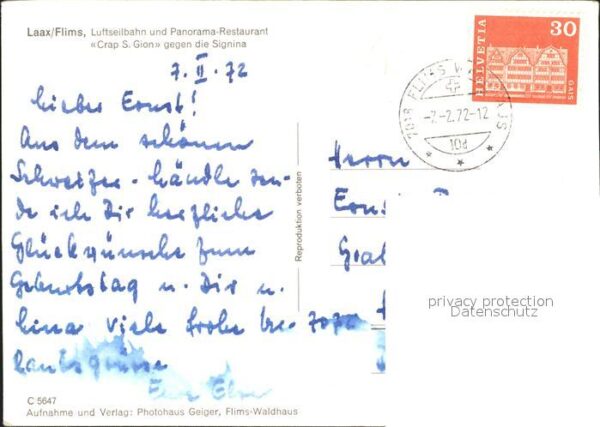 Laax/Flims, Luftseilbahn und Panorama-Restaurant
«Crap S. Gion» gegen die Signina
7. II. 72
Lieber Ernst!
Aus dem schönen
Schweizer-Ländle sen-
de ich Dir herzliche
Glückwünsche zum
Geburtstag u. Dir u.
Lina viele frohe Ur-
laubsgrüsse
HELVETIA
30
GAIS
7018 FLIMS
-7.-2.72-12
Reproduktion verboten
Herrn
privacy protection
Datenschutz
C 5647
Aufnahme und Verlag: Photohaus Geiger, Flims-Waldhaus